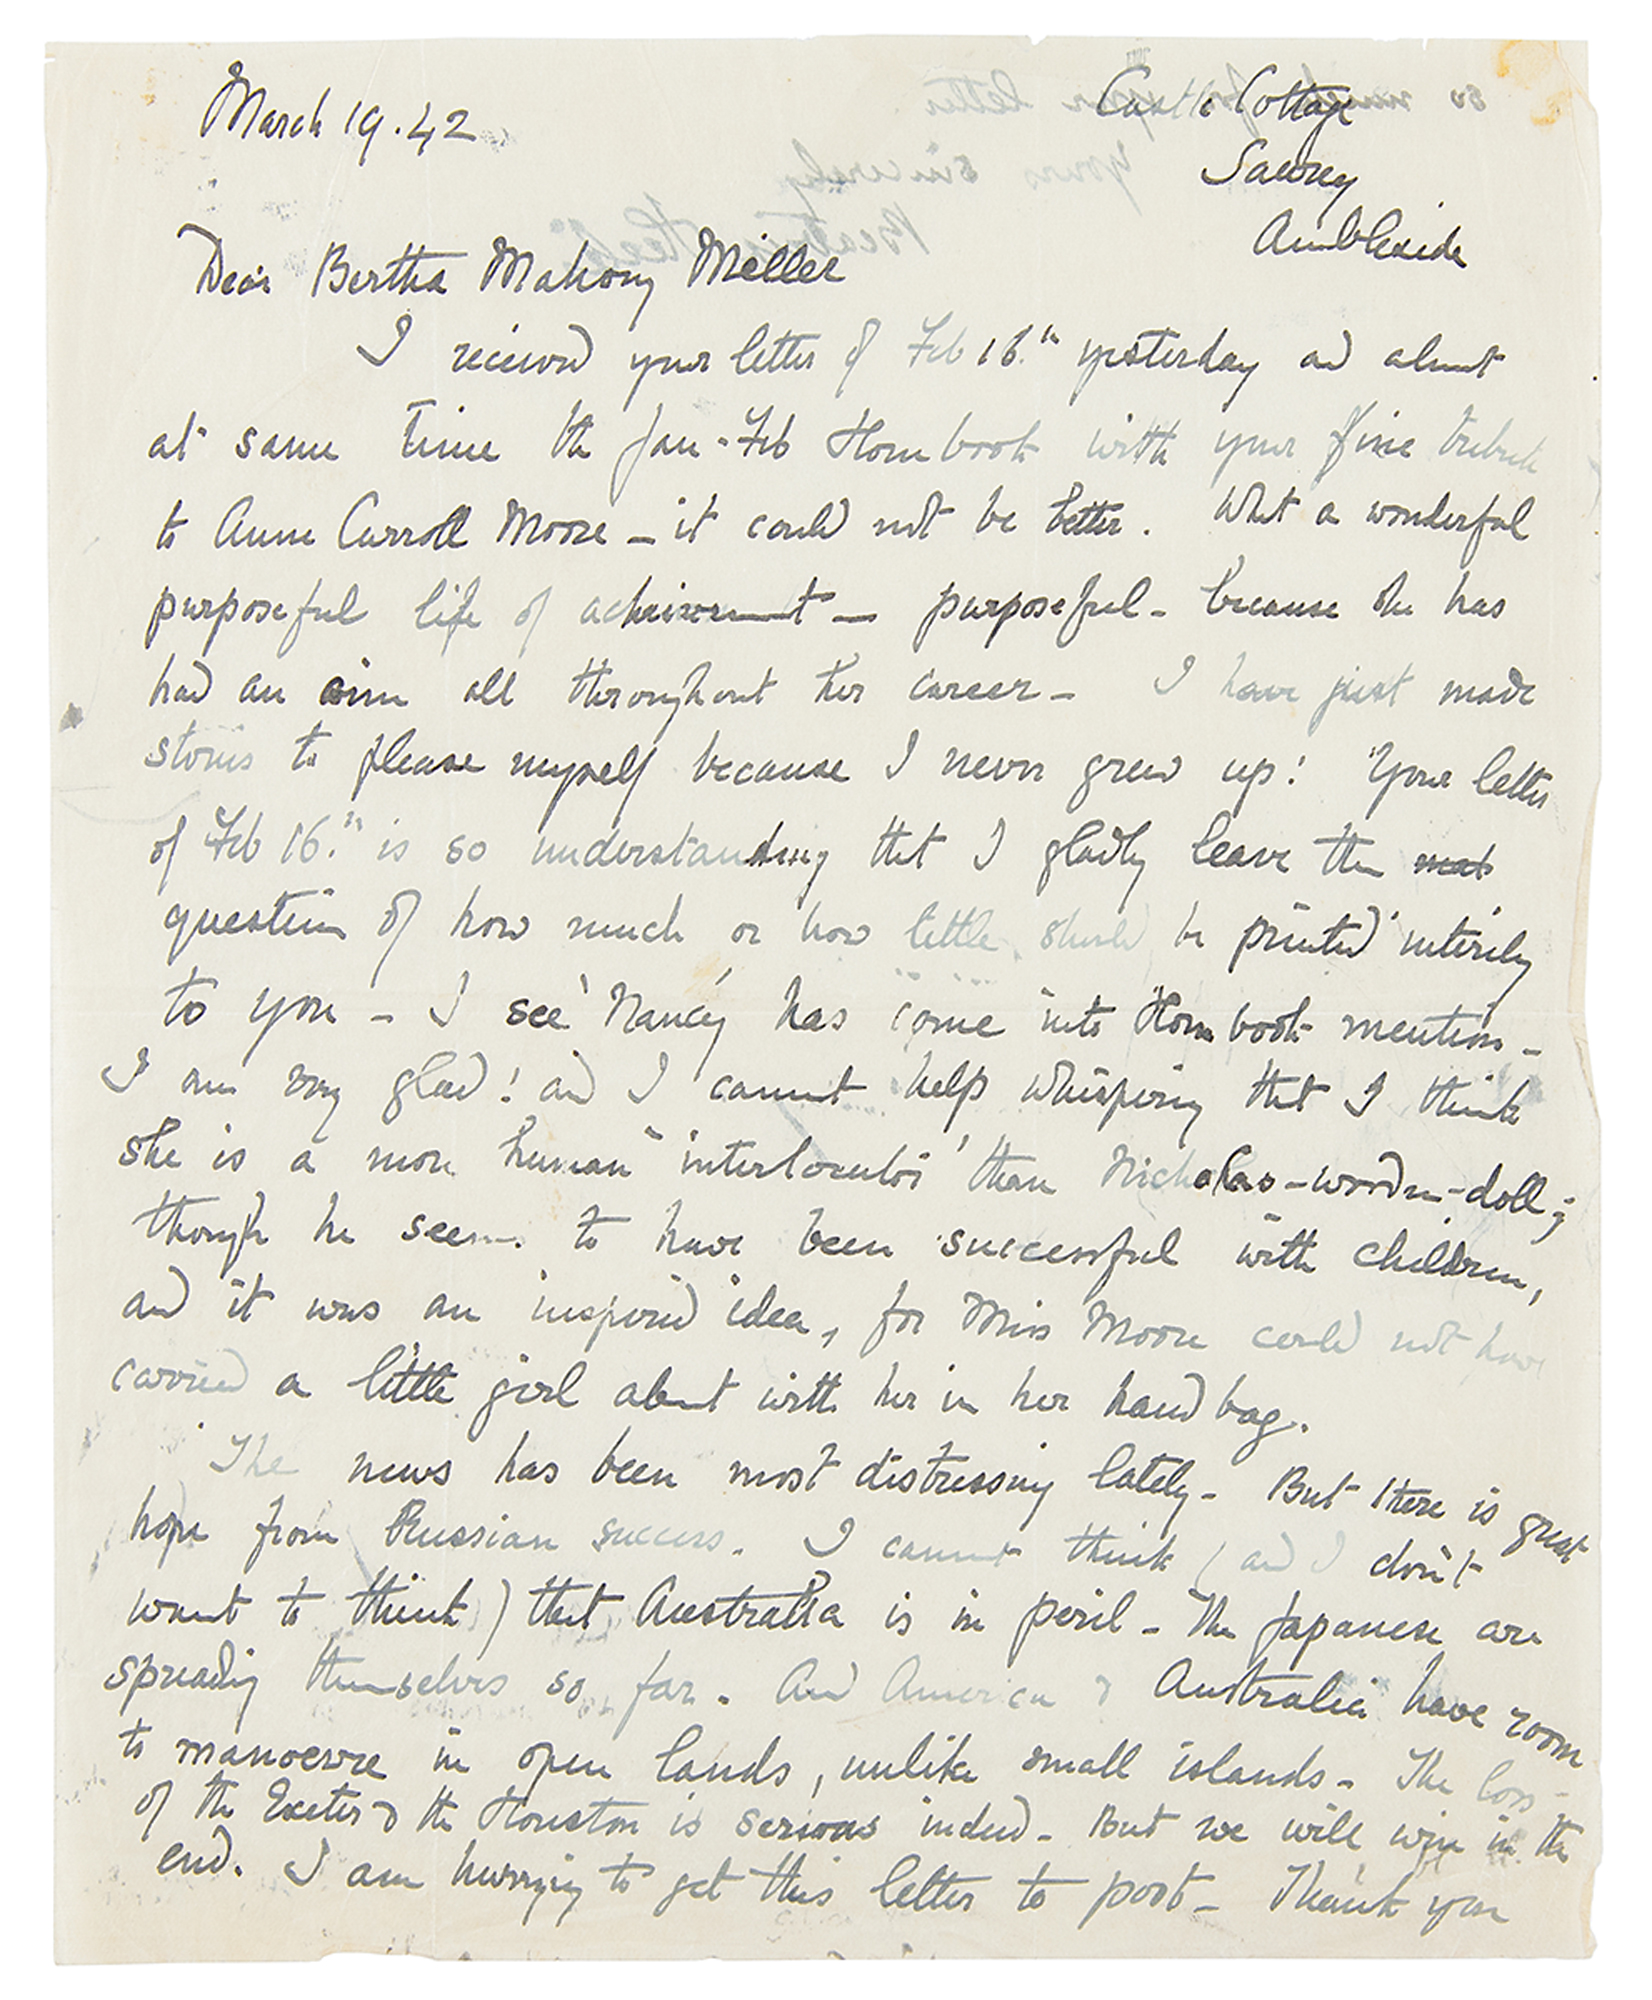 March 19.42
Castle Cottage
Sawrey
Ambleside
Dear Bertha Mahony Miller
I received your letter of Feb 16.th yesterday and about
at same time the Jan-Feb Hornbook with your fine tribute
to Anne Carroll Moore – it could not be better. What a wonderful
purposeful life of acheivement – purposeful – because she has
had an aim all throughout her career – I have just made
stories to please myself because I never grew up! Your letter
of Feb 16.th is so understanding that I gladly leave the
question of how much or how little should be printed intirely
to you – I see 'Nancy' has come into Horn book mention –
I am very glad! and I cannot help whispering that I think
she is a more human "interlocutor" than Nicholas-wooden-doll;
though he seems to have been successful with children,
and it was an inspired idea, for Miss Moore could not have
carried a little girl about with her in her hand bag.
The news has been most distressing lately – But there is great
hope from Russian success. I cannot think (and I don't
want to think) that Australia is in peril – The Japanese are
spreading themselves so far. And America & Australia have room
to manoevre in open lands, unlike small islands – The loss
of the Exeter & the Houston is serious indeed – But we will win in the
end. I am hurrying to get this letter to post – Thank you
so much for your letter
Yours sincerely
Beatrix Heelis